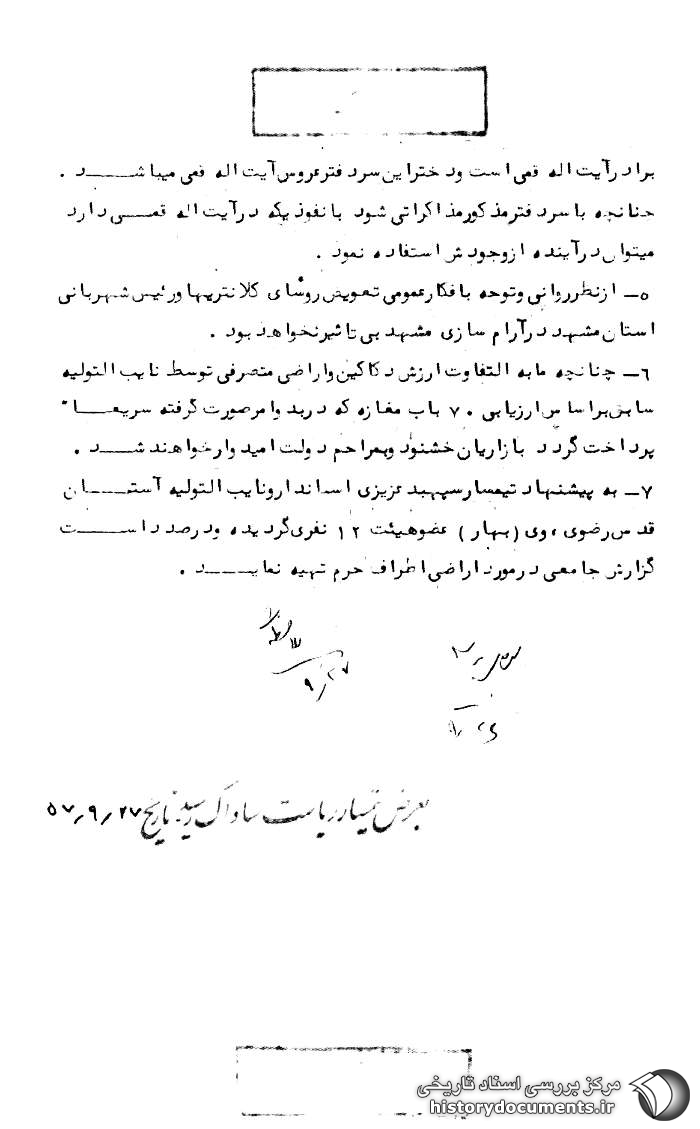 برادر آیت اله قمی است و دختر این سردفتر عروس آیت اله قمی میباشـــد .
چنانچه با سردفتر مذکور مذاکراتی شود با نفوذیکه در آیت اله قمـــی دارد
میتوان در آینده از وجودش استفاده نمود .
۵ــ از نظر روانی و توجه بافکار عمومی تعویض روسای کلانتریها و رئیس شهربانی
استان مشهد در آرام سازی مشهد بی تاثیر نخواهد بود .
۶ــ چنانچه مابه التفاوت ارزش دکاکین و اراضی متصرفی توسط نایب التولیه
سابق بر اساس ارزیابی ۷۰ باب مغازه که در بدو امر صورت گرفته سریعـــا"
پرداخت گردد بازاریان خشنود و بمراحم دولت امیدوار خواهند شـــد .
۷ــ به پیشنهاد تیمسار سپهبد عزیزی استاندار و نایب التولیه آستـــان
قدس رضوی ، وی (بهار) عضو هیئت ۱۲ نفری گردیده و درصدد اســـت
گزارش جامعی در مورد اراضی اطراف حرم تهیه نمایـــد .
ملاحظه شد
۹/۲۷
بعرض تیمسار ریاست ساواک رسید. تاریخ ۵۷٫۹٫۲۷
مرکز بررسی اسناد تاریخی
historydocuments.ir